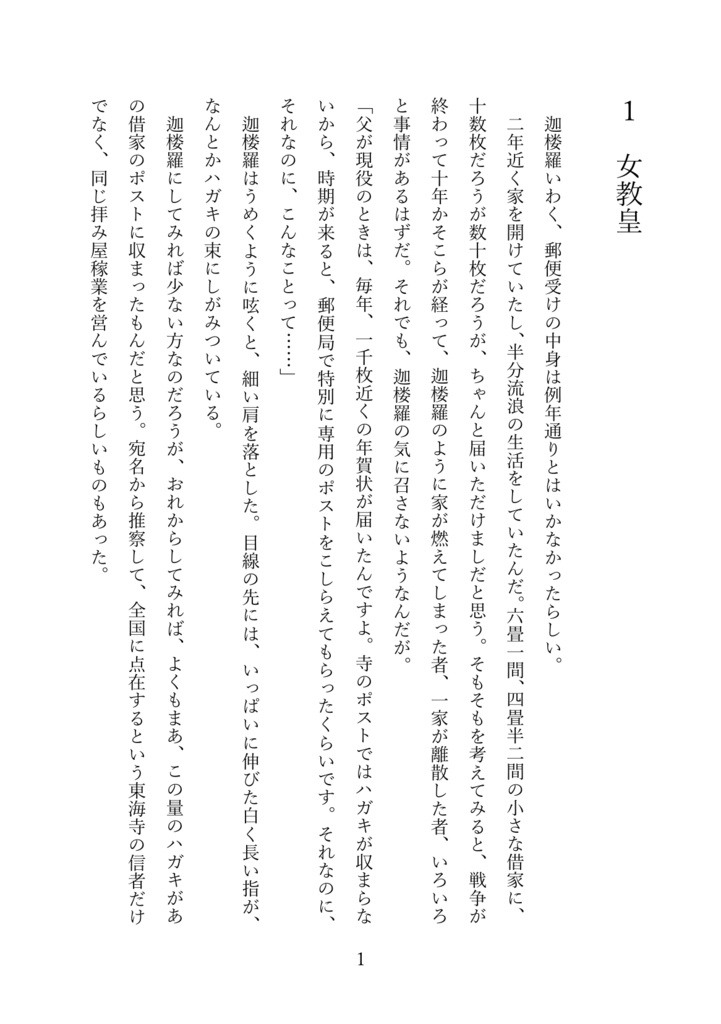 1　女教皇
　迦楼羅いわく、郵便受けの中身は例年通りとはいかなかったらしい。
　二年近く家を開けていたし、半分流浪の生活をしていたんだ。六畳一間、四畳半二間の小さな借家に、
十数枚だろうが数十枚だろうが、ちゃんと届いただけましだと思う。そもそもを考えてみると、戦争が
終わって十年かそこらが経って、迦楼羅のように家が燃えてしまった者、一家が離散した者、いろいろ
と事情があるはずだ。それでも、迦楼羅の気に召さないようなんだが。
「父が現役のときは、毎年、一千枚近くの年賀状が届いたんですよ。寺のポストではハガキが収まらな
いから、時期が来ると、郵便局で特別に専用のポストをこしらえてもらったくらいです。それなのに、
それなのに、こんなことって……」
　迦楼羅はうめくように呟くと、細い肩を落とした。目線の先には、いっぱいに伸びた白く長い指が、
なんとかハガキの束にしがみついている。
　迦楼羅にしてみれば少ない方なのだろうが、おれからしてみれば、よくもまあ、この量のハガキがあ
の借家のポストに収まったもんだと思う。宛名から推察して、全国に点在するという東海寺の信者だけ
でなく、同じ拝み屋稼業を営んでいるらしいものもあった。
1